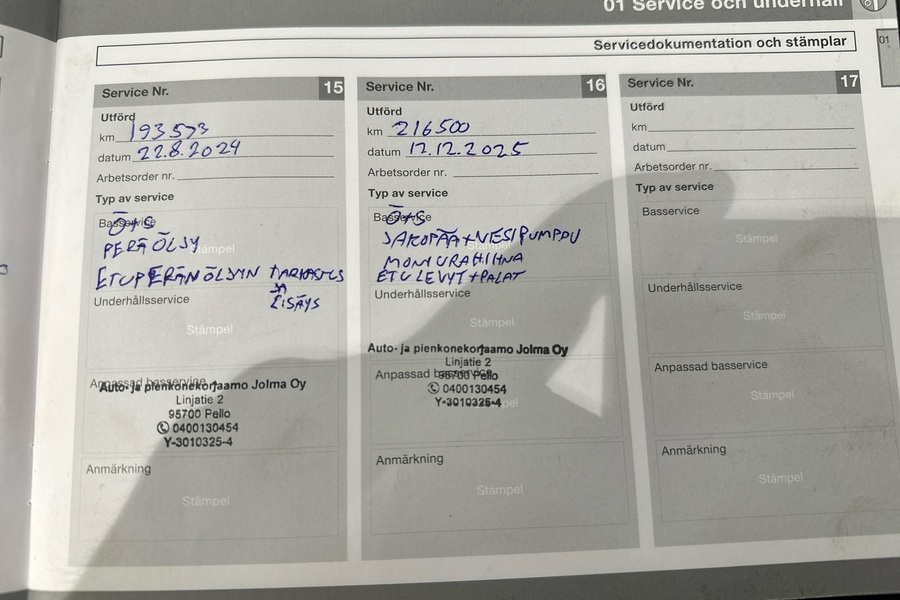 01 Service och underhåll
01
Servicedokumentation och stämplar
Service Nr. 15
Utförd
km 193573
datum 22.8.2024
Arbetsorder nr.
Typ av service
Basservice
Ö+S
PERÄ ÖLJY
Stämpel
ETUPERÄN ÖLJYN TARKASTUS
JA
LISÄYS
Underhållsservice
Stämpel
Anpassad basservice
Auto- ja pienkonekorjaamo Jolma Oy
Linjatie 2
95700 Pello
0400130454
Y-3010325-4
Anmärkning
Stämpel
Service Nr. 16
Utförd
km 216500
datum 12.12.2025
Arbetsorder nr.
Typ av service
Basservice
Ö+S
JAKOPÄÄ+VESIPUMPPU
Stämpel
MONIURAHIHNA
ETULEVYT+PALAT
Underhållsservice
Stämpel
Auto- ja pienkonekorjaamo Jolma Oy
Linjatie 2
Anpassad basservice
95700 Pello
0400130454
Y-3010325-4
Anmärkning
Stämpel
Service Nr. 17
Utförd
km
datum
Arbetsorder nr.
Typ av service
Basservice
Stämpel
Underhållsservice
Stämpel
Anpassad basservice
Stämpel
Anmärkning
Stämpel